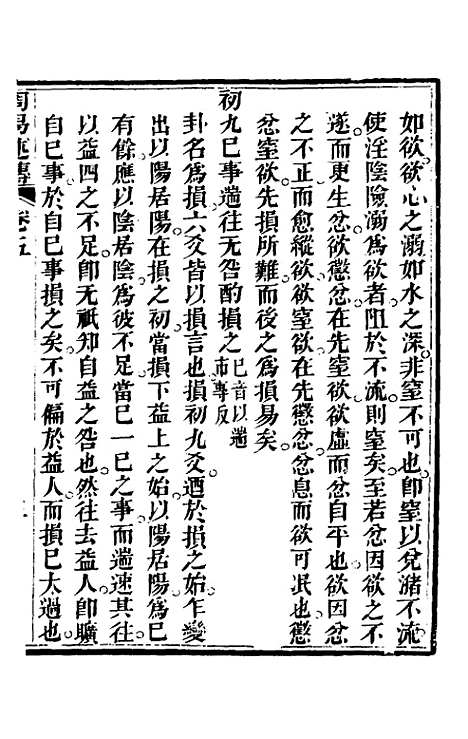 如欲欲心之溺如水之深非窒不可也卽窒以兌瀦不流
使淫陰險溺爲欲者阻於不流則窒矣至若忿因欲之不
遂而更生忿欲懲忿在先窒欲欲虛而忿自平也欲因忿
之不正而愈縱欲欲窒欲在先懲忿忿息而欲可泯也懲
忿窒欲先損所難而後之爲損易矣
初九巳事遄往无咎酌損之巳音以遄市專反
卦名爲損六爻皆以損言也損初九爻迺於損之始乍變
出以陽居陽在損之初當損下益上之始以陽居陽爲巳
有餘應以陰居陰爲彼不足當巳一巳之事而遄速其往
以益四之不足卽无祇知自益之咎也然往去益人卽曠
自巳事於自巳事損之矣不可偏於益人而損巳太過也
周易述傳 卷之五